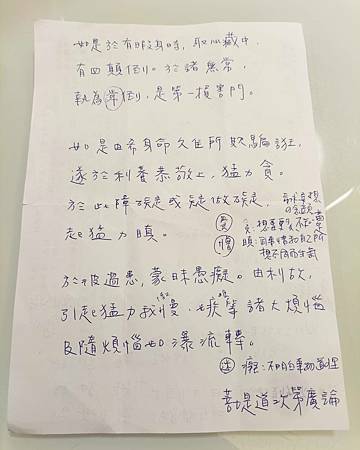 如是於有暇身時,取心藏中,
有四顛倒。於諸無常,
執為常倒,是第一損害門。
如是由希身命久住所欺騙誑,
遂於利養恭敬上,猛力貪。
於此障礙或疑作礙,
起猛力瞋。
貪:想要更多
瞋:
想不同而生氣
於彼過患,蒙昧愚癡。由利故,
引起猛力我慢、嫉等諸大煩惱
及隨煩惱如瀑流轉。
註 癡:不明白事物道理
菩提道次第廣論